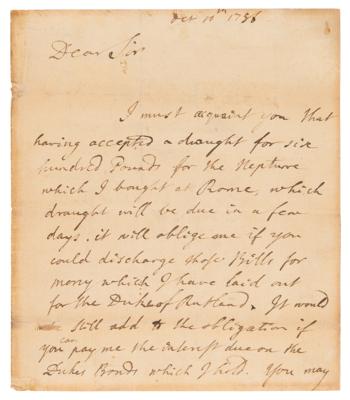 Oct 10th 1786
Dear Sir
I must aquaint you that
having accepted a draught for six
hundred Pounds for the Neptune
which I bought at Rome, which
draught will be due in a few
days. it will oblige me if you
could discharge those Bills for
mony which I have laid out
for the Duke of Rutland. It would
still add to the obligation if
you can pay me the interest due on the
Dukes Bonds which I hold. You may